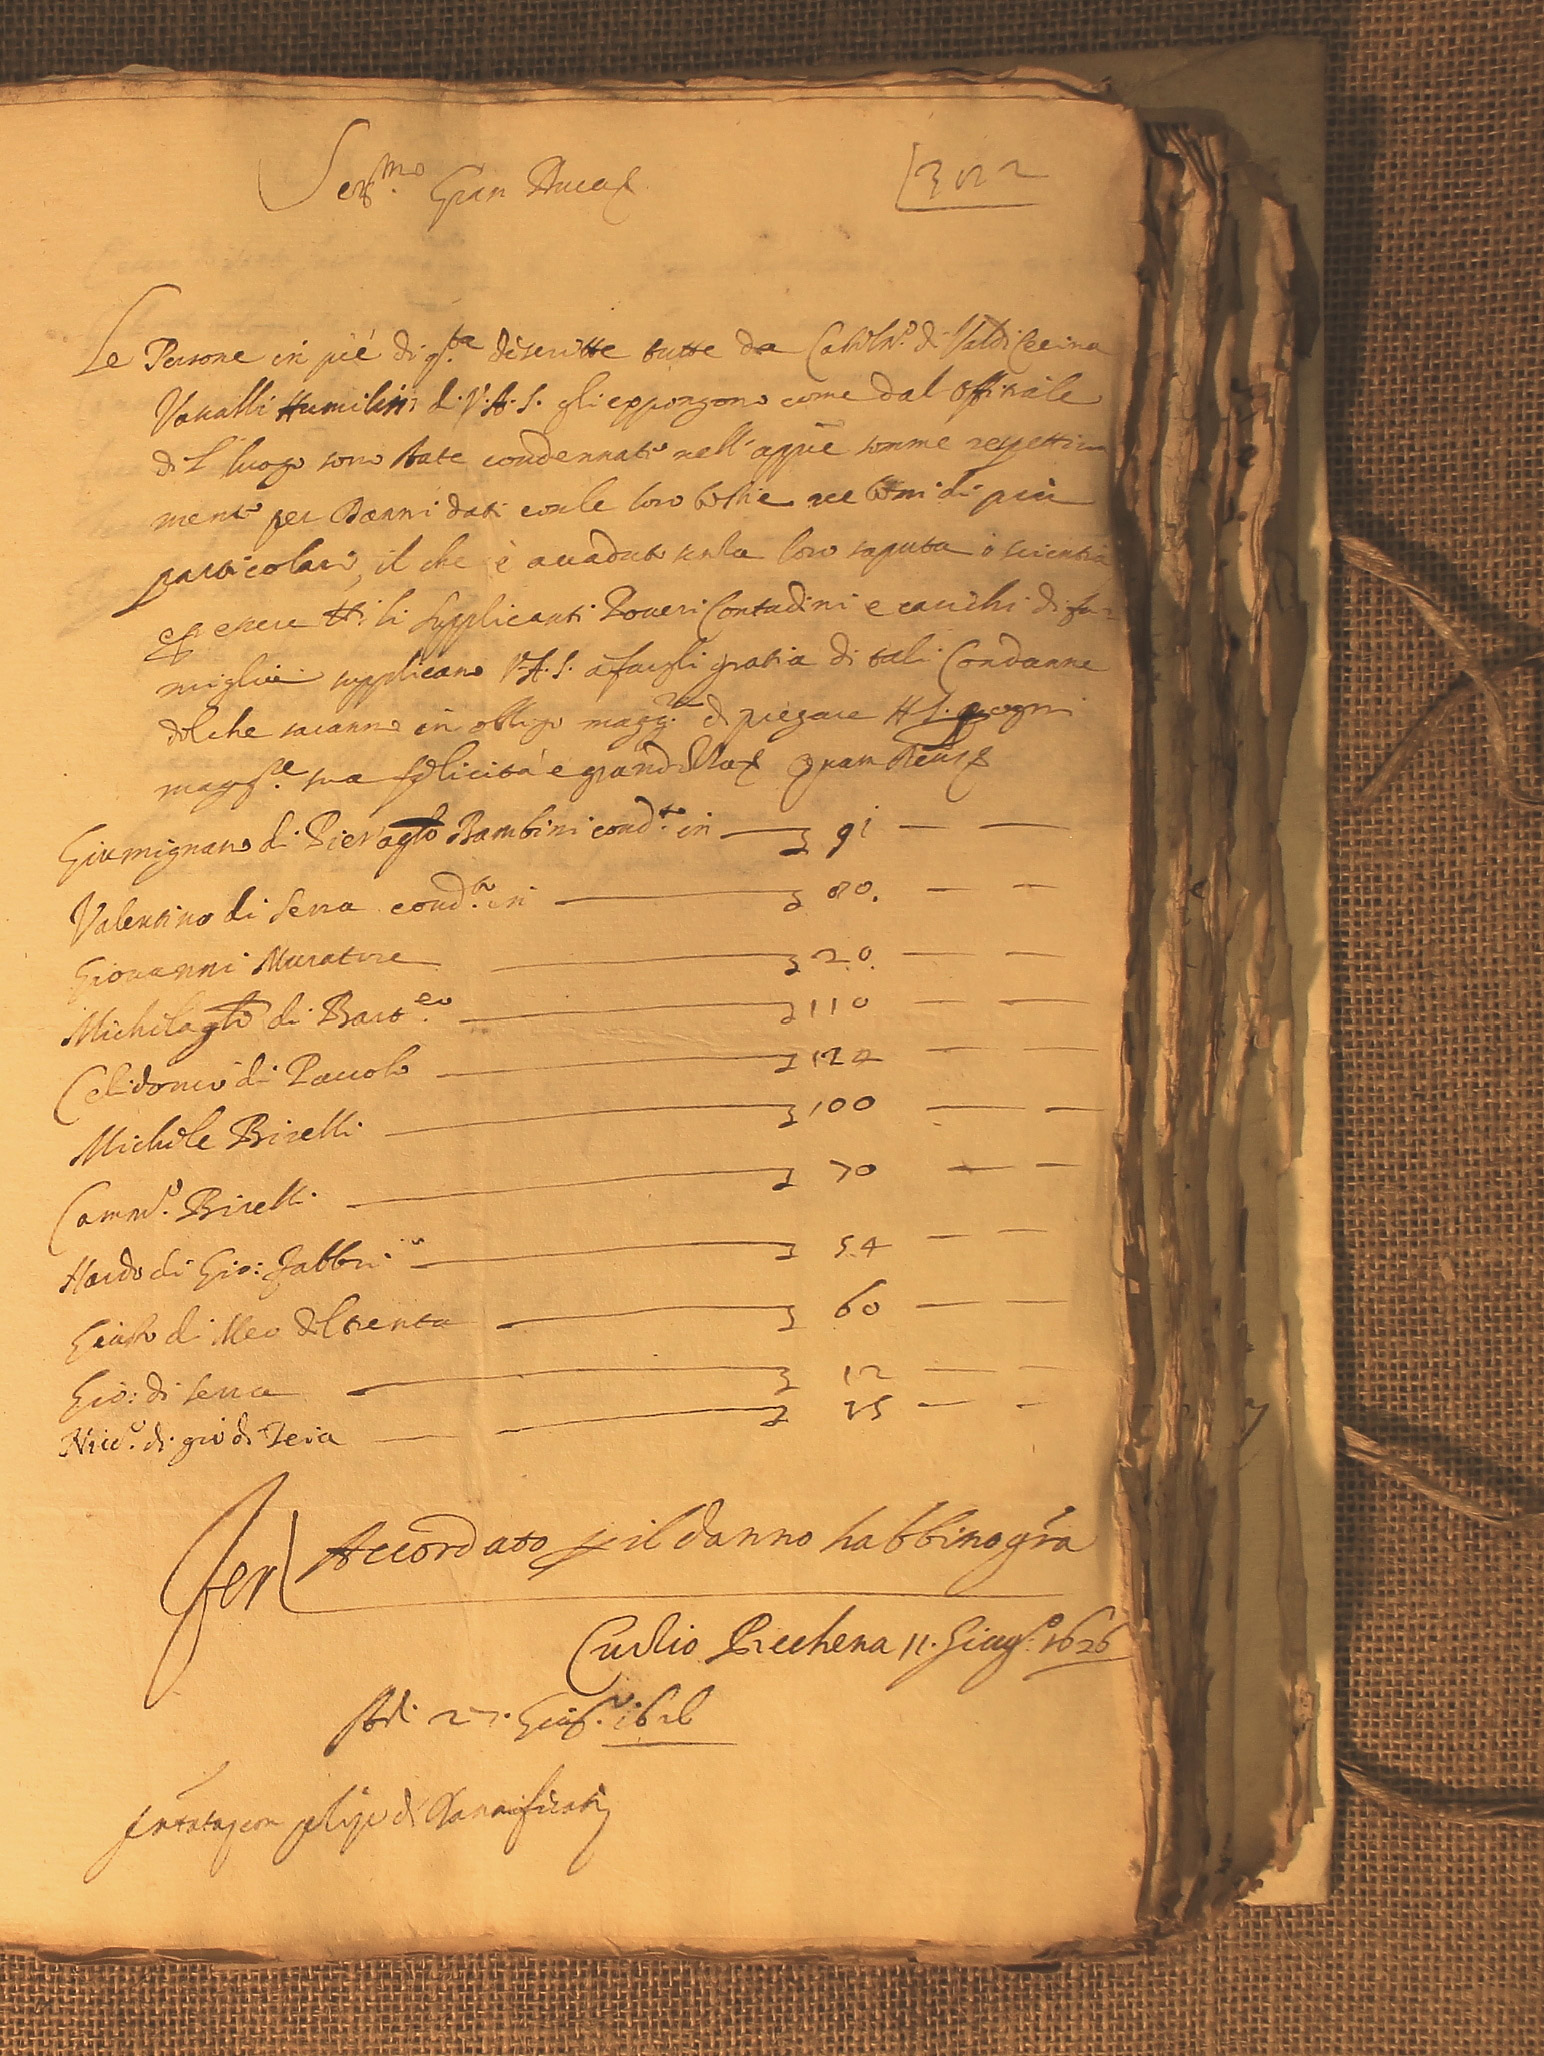 Ser.mo Gran Duca
322
Le Persone in piè di q.ta descritte tutte da Casteln.o di Valdicecina
Vassalli Humiliss.i di V.A.S. gli expongono come dal Offitiale
di d.o luogo sono state condennati nell'appiè somme respettiva
mente per Danni dati con le loro bestie ne beni di più
particolari, il che è accaduto senza loro saputa ò scientia
et essere tt.i li supplicanti Poveri Contadini e carichi di fa-
miglia supplicano V.A.S. a fargli gratia di tali Condanne
del che saranno in obligo magg.re di pregare per ogni
magg.re sua felicità e grandezza quam Deus
Giumignano di Pier'Ag.lo Bambini cond.to in — 91 — —
Valentino di Serra cond.to in — 80. — —
Giovanni Muratore — 20. — —
Michelag.lo di Bart.eo — 110 — —
Celidonio di Paccolo — 124 — —
Michele Birelli — 100 — —
Camm.o Birelli — 70 — —
Nardo di Gio: Fabbri — 54 — —
Giusto di Meo del trenta — 60 — —
Gio: di Serra — 12 — —
Nicc.o di gio di — 25 — —
Fer
Accordato p il danno habbino gra
Curtio Picchena 11. Giug.o 1626
Adi 27. Giug.o 1626